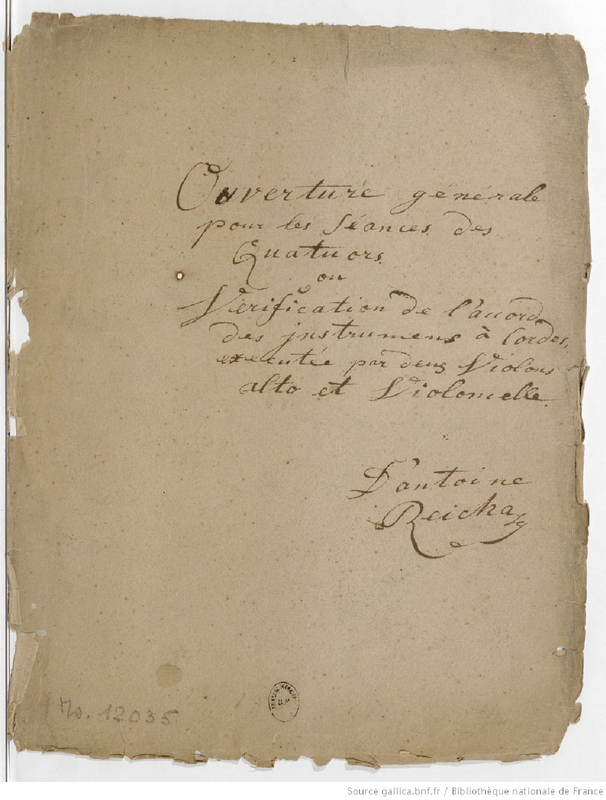 Ouverture générale
pour les Séances des
Quatuors
ou
Vérification de l'accord
des instrumens à Cordes,
executée par deux Violons
alto et Violoncelle
D'antoine
Reicha
Ms. 12035
Source gallica.bnf.fr / Bibliothèque nationale de France